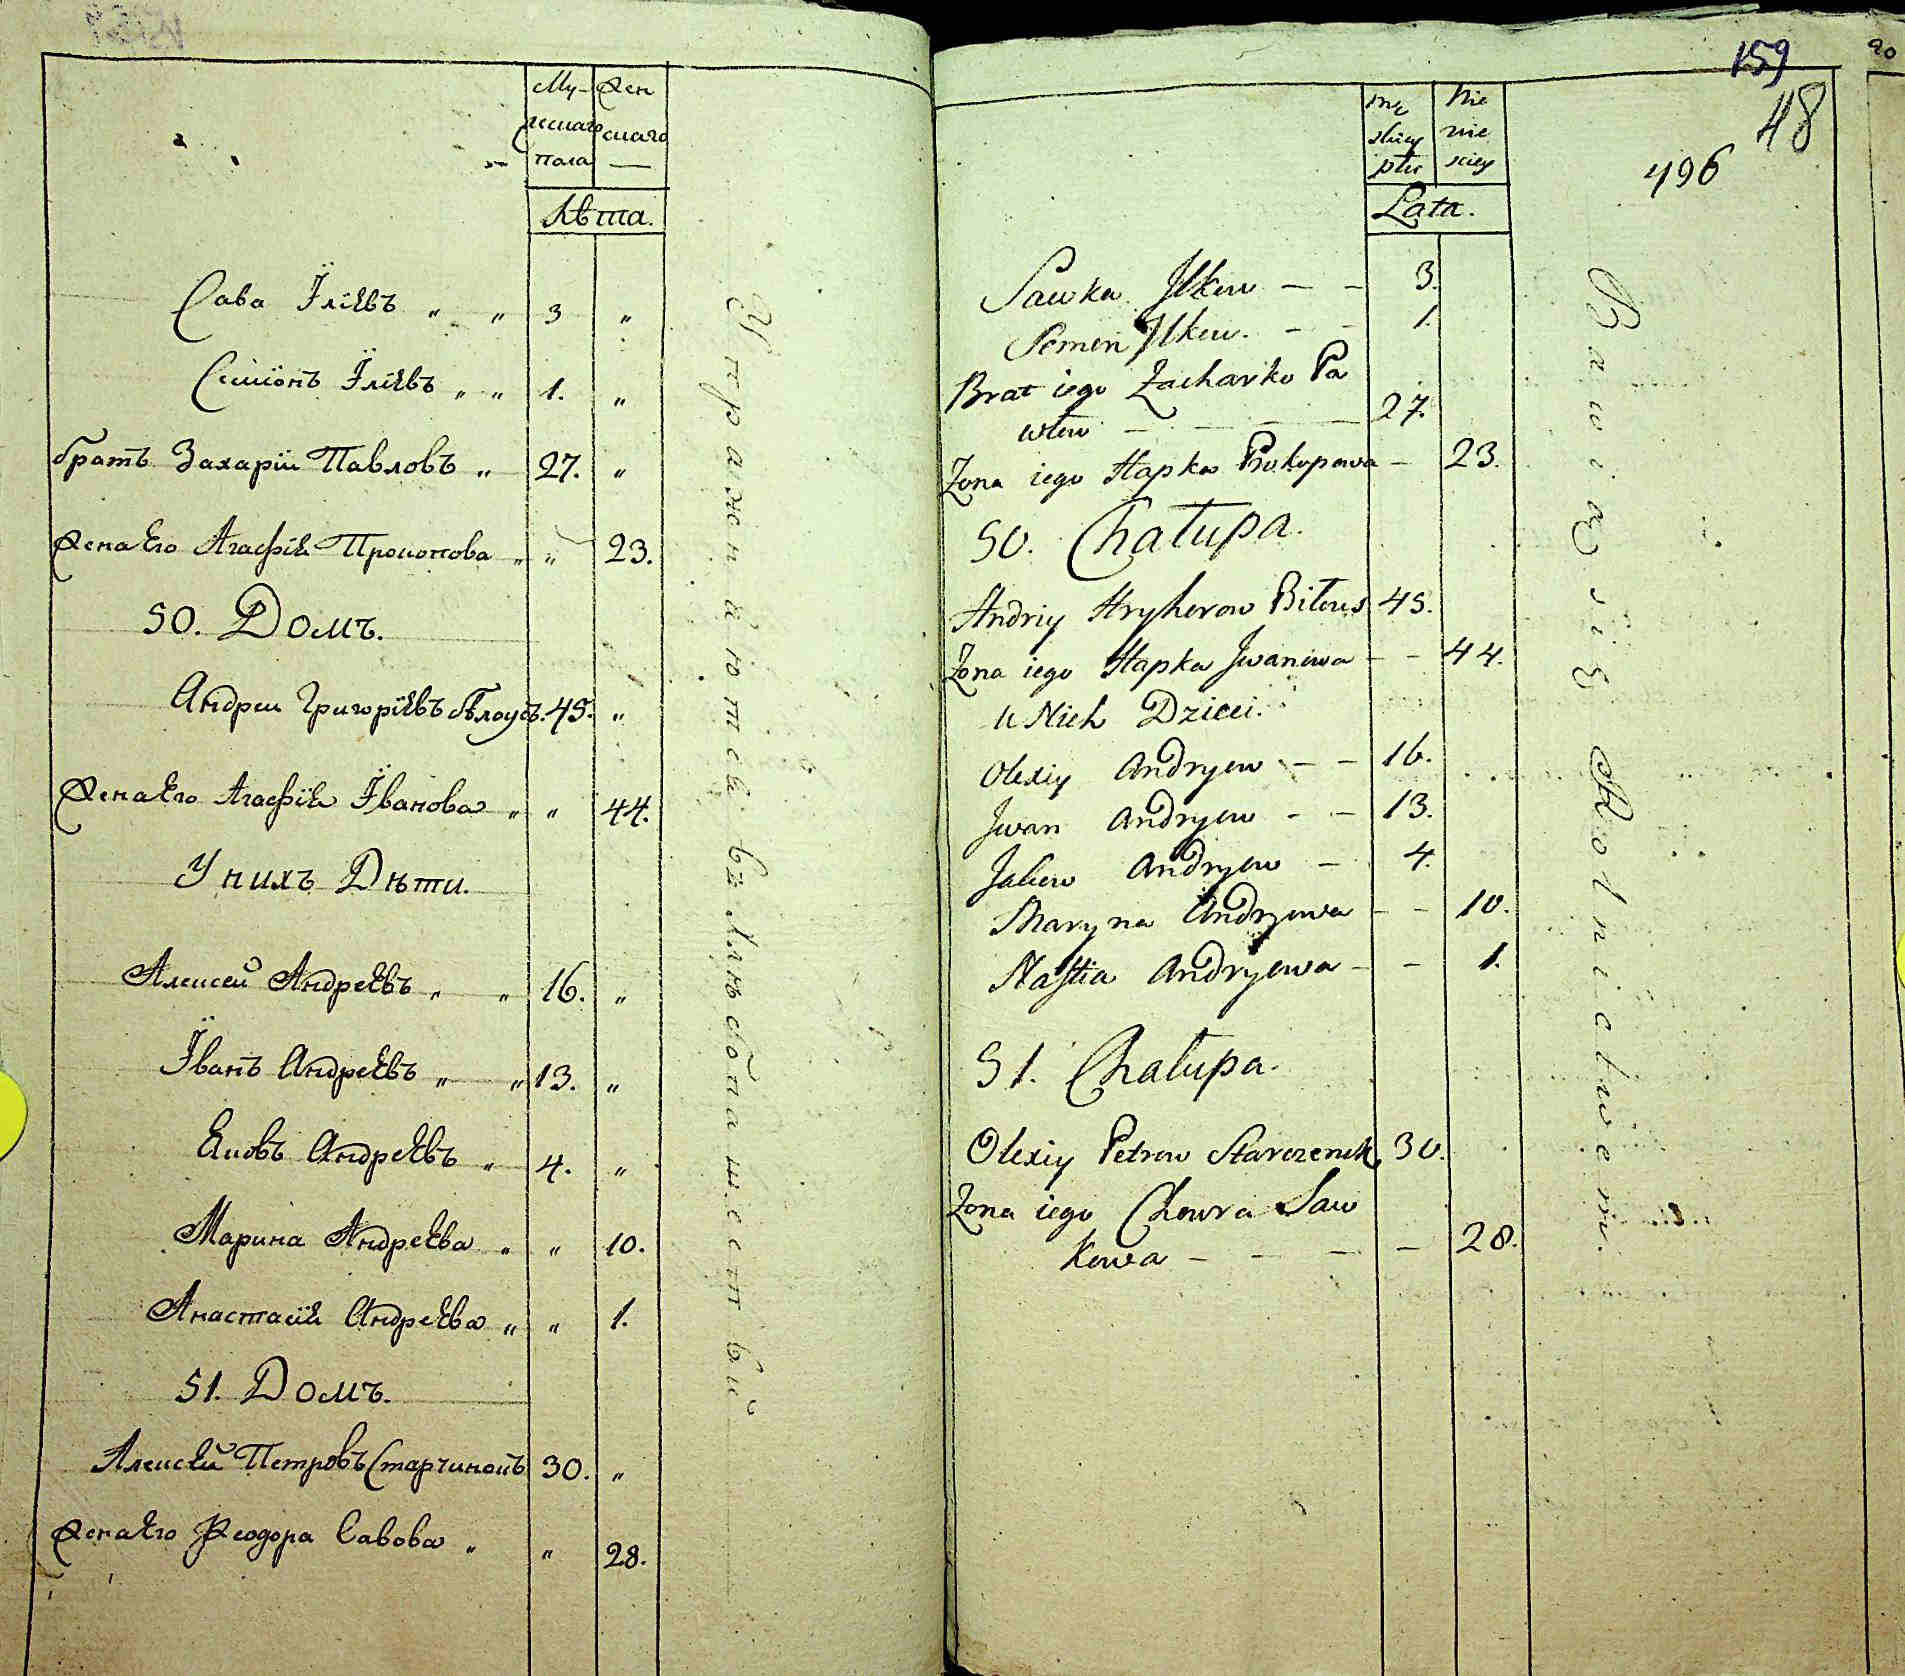 Му-
жескаго
пола
Жен
скаго
Лѣта.
Сава Їлїевъ „ „ 3 „
Симїонъ Їлїевъ „ „ 1. „
братъ Захарїи Павловъ „ 27. „
Жена Его Агафїя Прокопова „ „ 23.
50. Домъ.
Андреи Григорїевъ бѣлоусъ. 45. „
Жена Его Агафїя Їванова „ „ 44.
У нихъ Дѣти.
Алексей Андреевъ „ „ 16. „
Їванъ Андреевъ „ „ 13. „
Яковъ Андреевъ „ 4. „
Марина Андреева „ „ 10.
Анастасїя Андреева „ „ 1.
51. Домъ.
Алексей Петровъ Старчинокъ 30. „
Жена Его Феодора Савова „ „ 28.
Упражняются въ хлѣбопашествѣ
159
48
496
20
mę
skiey
płci
Nie
wie
sciey
Lata.
Sawka Jlkow — — 3.
Semen Jlkow. — — 1.
Brat iego Zacharko Pa
włow — — — — 27.
Zona iego Hapka Prokopowa — 23.
50. Chałupa.
Andriy Hryhorow Biłous 45.
Zona iego Hapka Jwanowa — — 44.
U Nich Dzieci.
Olexiy Andryew — — 16.
Jwan Andryew — — 13.
Jakow Andryew — 4.
Maryna Andryewa — — 10.
Nastia Andryewa — — 1.
51. Chałupa.
Olexiy Petrow Starczenok 30.
Zona iego Chowra Saw
kowa — — — — 28.
Bawią się Rolnictwem.